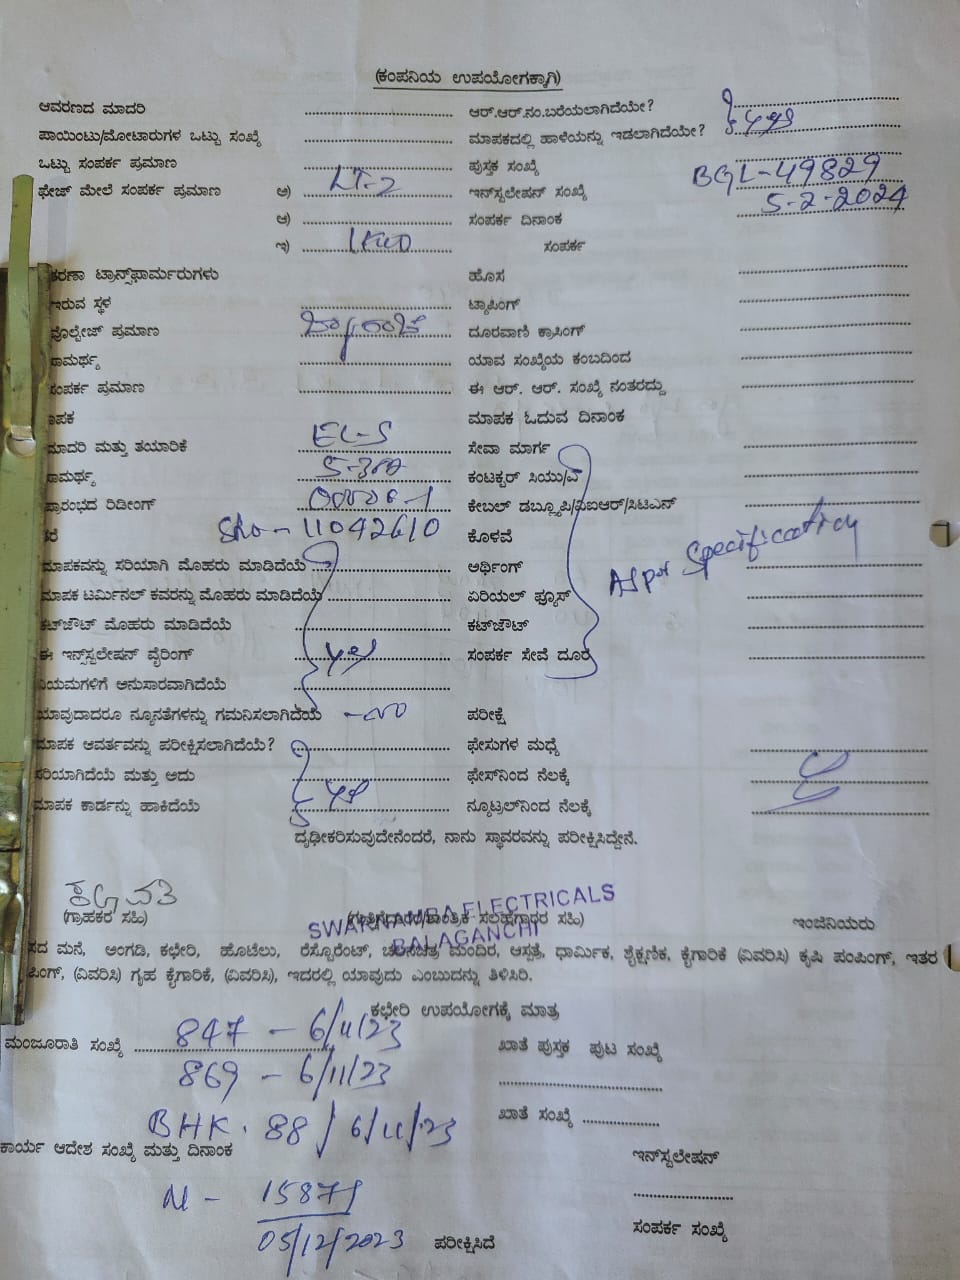 (ಕಂಪನಿಯ ಉಪಯೋಗಕ್ಕಾಗಿ)
ಆವರಣದ ಮಾದರಿ ಆರ್.ಆರ್.ನಂ.ಬರೆಯಲಾಗಿದೆಯೇ?
ಪಾಯಿಂಟು/ಮೋಟಾರುಗಳ ಒಟ್ಟು ಸಂಖ್ಯೆ ಮಾಪಕದಲ್ಲಿ ಹಾಳೆಯನ್ನು ಇಡಲಾಗಿದೆಯೇ? yes
ಒಟ್ಟು ಸಂಪರ್ಕ ಪ್ರಮಾಣ ಪುಸ್ತಕ ಸಂಖ್ಯೆ
ಫೇಜ್ ಮೇಲೆ ಸಂಪರ್ಕ ಪ್ರಮಾಣ ಅ) LT-2 ಇನ್‌ಸ್ಟಲೇಷನ್ ಸಂಖ್ಯೆ BGL-49829
ಆ) ಸಂಪರ್ಕ ದಿನಾಂಕ 5-2-2024
ಇ) 1KW ಸಂಪರ್ಕ
ಕರಣಾ ಟ್ರಾನ್ಸ್‌ಫಾರ್ಮರುಗಳು ಹೊಸ
ಇರುವ ಸ್ಥಳ ಟ್ಯಾಪಿಂಗ್
ವೊಲ್ಟೇಜ್ ಪ್ರಮಾಣ ದೂರವಾಣಿ ಕ್ರಾಸಿಂಗ್
ಸಾಮರ್ಥ್ಯ ಯಾವ ಸಂಖ್ಯೆಯ ಕಂಬದಿಂದ
ಸಂಪರ್ಕ ಪ್ರಮಾಣ ಈ ಆರ್. ಆರ್. ಸಂಖ್ಯೆ ನಂತರದ್ದು
ಮಾಪಕ ಓದುವ ದಿನಾಂಕ
ಮಾದರಿ ಮತ್ತು ತಯಾರಿಕೆ EL-S ಸೇವಾ ಮಾರ್ಗ
ಸಾಮರ್ಥ್ಯ 5-30A ಕಂಟಕ್ಟರ್ ಸಿಯು/ಎ
ಪ್ರಾರಂಭದ ರಿಡೀಂಗ್ ಕೇಬಲ್ ಡಬ್ಲ್ಯೂಪಿ/ವಿಐಆರ್/ಸಿಟಿಎನ್
Slno - 11042610 ಕೊಳವೆ
ಮಾಪಕವನ್ನು ಸರಿಯಾಗಿ ಮೊಹರು ಮಾಡಿದೆಯೆ ಅರ್ಥಿಂಗ್ As per Specification
ಮಾಪಕ ಟರ್ಮಿನಲ್ ಕವರನ್ನು ಮೊಹರು ಮಾಡಿದೆಯೆ ಏರಿಯಲ್ ಫ್ಯೂಸ್
ಕಟ್‌ಔಟ್ ಮೊಹರು ಮಾಡಿದೆಯೆ ಕಟ್‌ಔಟ್
ಈ ಇನ್‌ಸ್ಟಲೇಷನ್ ವೈರಿಂಗ್ yes ಸಂಪರ್ಕ ಸೇವೆ ದೂರ
ನಿಯಮಗಳಿಗೆ ಅನುಸಾರವಾಗಿದೆಯೆ
ಯಾವುದಾದರೂ ನ್ಯೂನತೆಗಳನ್ನು ಗಮನಿಸಲಾಗಿದೆಯೆ - no ಪರೀಕ್ಷೆ
ಮಾಪಕ ಆವರ್ತವನ್ನು ಪರೀಕ್ಷಿಸಲಾಗಿದೆಯೆ? ಫೇಸುಗಳ ಮಧ್ಯೆ
ಸರಿಯಾಗಿದೆಯೆ ಮತ್ತು ಅದು ಫೇಸ್‌ನಿಂದ ನೆಲಕ್ಕೆ
ಮಾಪಕ ಕಾರ್ಡನ್ನು ಹಾಕಿದೆಯೆ yes ನ್ಯೂಟ್ರಲ್‌ನಿಂದ ನೆಲಕ್ಕೆ
ದೃಢೀಕರಿಸುವುದೇನೆಂದರೆ, ನಾನು ಸ್ಥಾವರವನ್ನು ಪರೀಕ್ಷಿಸಿದ್ದೇನೆ.
SWARNAMBA ELECTRICALS
(ಗ್ರಾಹಕರ ಸಹಿ) (ಗುತ್ತಿಗೆದಾರರ/ತಾಂತ್ರಿಕ ಸಲಹೆಗಾರರ ಸಹಿ) ಇಂಜಿನಿಯರು
BALAGANCHI
ಸದ ಮನೆ, ಅಂಗಡಿ, ಕಛೇರಿ, ಹೊಟೆಲು, ರೆಸ್ಟೋರೆಂಟ್, ಚಲನಚಿತ್ರ ಮಂದಿರ, ಆಸ್ಪತ್ರೆ, ಧಾರ್ಮಿಕ, ಶೈಕ್ಷಣಿಕ, ಕೈಗಾರಿಕೆ (ವಿವರಿಸಿ) ಕೃಷಿ ಪಂಪಿಂಗ್, ಇತರ
ಪಿಂಗ್, (ವಿವರಿಸಿ) ಗೃಹ ಕೈಗಾರಿಕೆ, (ವಿವರಿಸಿ), ಇದರಲ್ಲಿ ಯಾವುದು ಎಂಬುದನ್ನು ತಿಳಿಸಿರಿ.
ಕಛೇರಿ ಉಪಯೋಗಕ್ಕೆ ಮಾತ್ರ
ಮಂಜೂರಾತಿ ಸಂಖ್ಯೆ 847 - 6/11/23 ಖಾತೆ ಪುಸ್ತಕ ಪುಟ ಸಂಖ್ಯೆ
869 - 6/11/23
BHK. 88 / 6/11/23 ಖಾತೆ ಸಂಖ್ಯೆ
ಕಾರ್ಯ ಆದೇಶ ಸಂಖ್ಯೆ ಮತ್ತು ದಿನಾಂಕ ಇನ್‌ಸ್ಟಲೇಷನ್
05/12/2023 ಪರೀಕ್ಷಿಸಿದೆ ಸಂಪರ್ಕ ಸಂಖ್ಯೆ